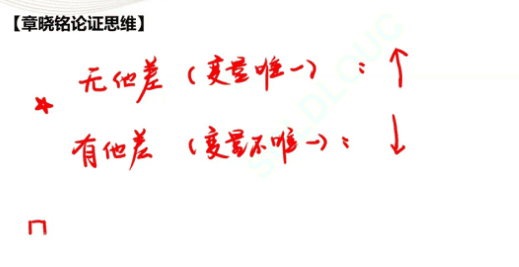 【章晓铭论证思维】
无他差（变量唯一）：↑
☆ 有他差（变量不唯一）：↓